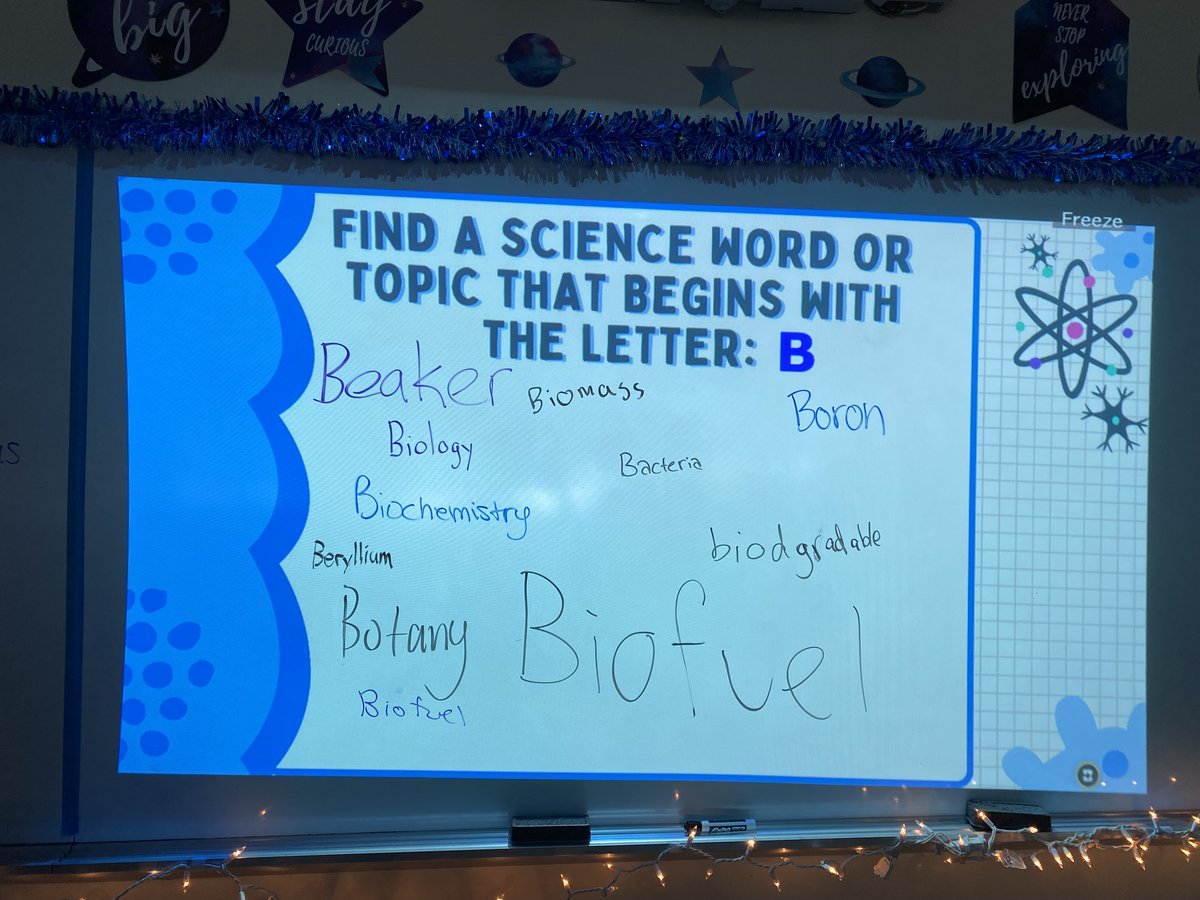 big
stay
CURIOUS
NEVER
STOP
exploring
Freeze
FIND A SCIENCE WORD OR
TOPIC THAT BEGINS WITH
THE LETTER: B
Beaker
Biomass
Boron
Biology
Bacteria
Biochemistry
Beryllium
biodgradable
Botany
Biofuel
Biofuel